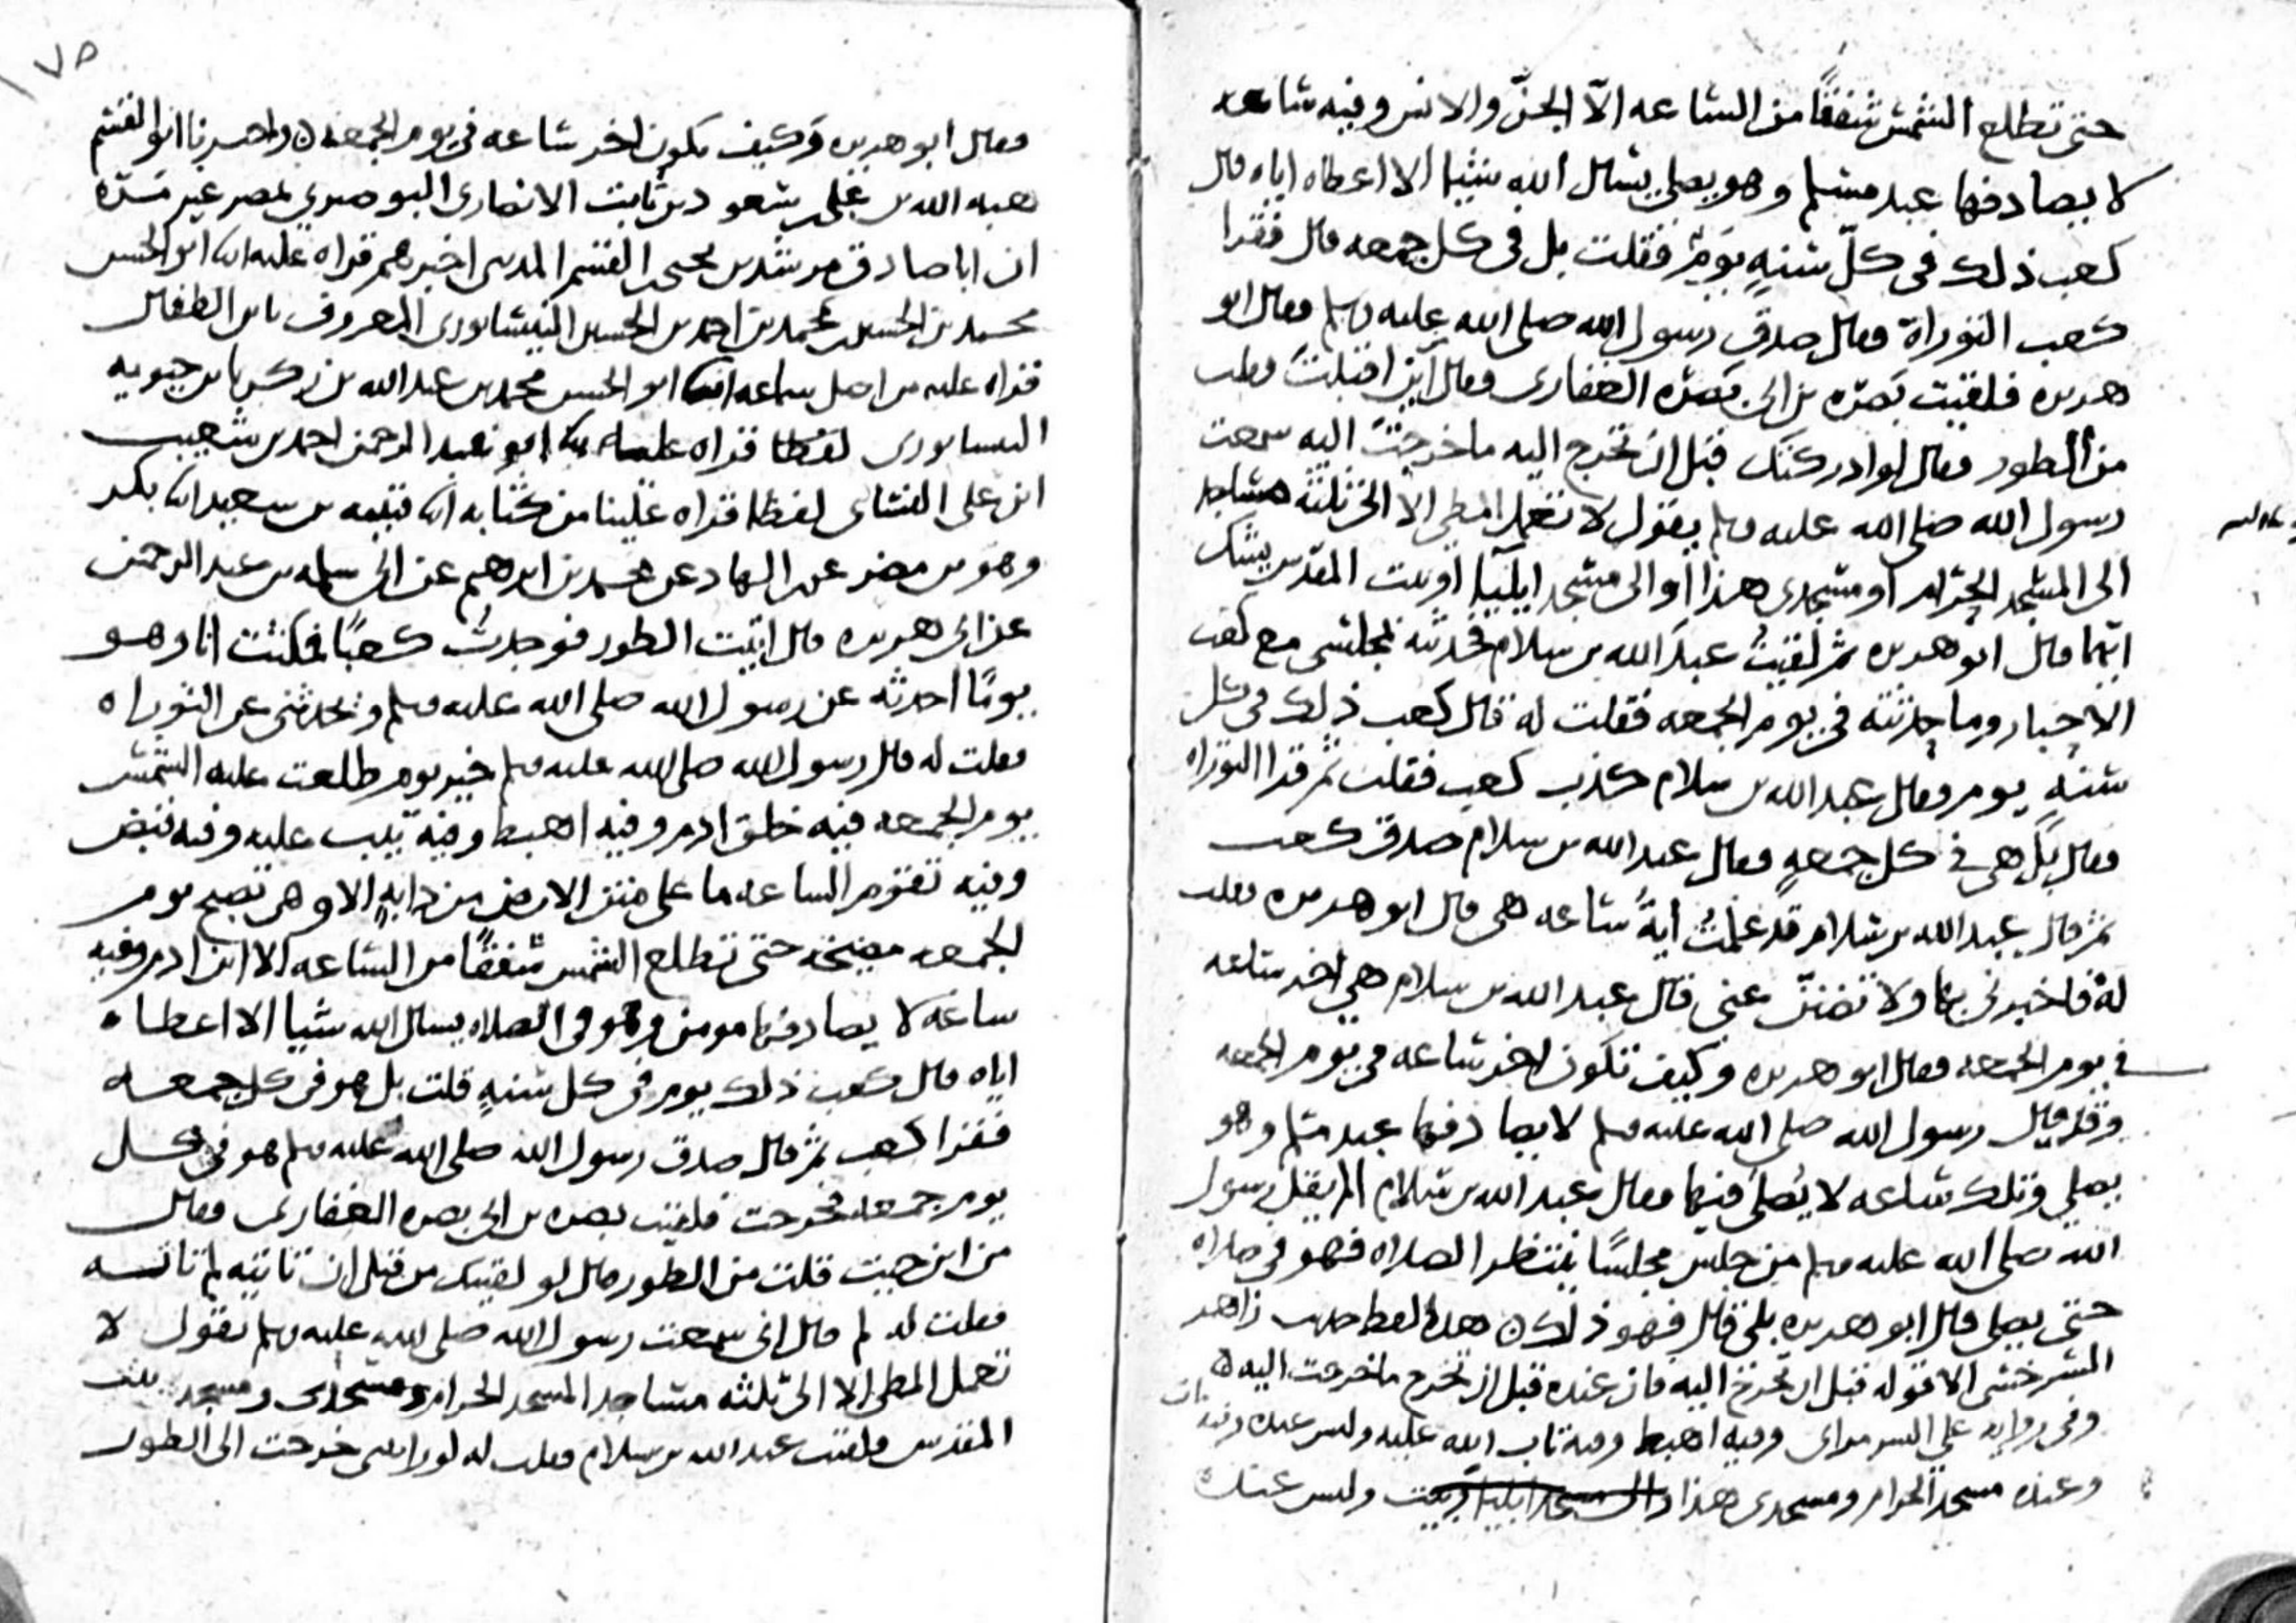 حتى تطلع الشمس شفقًا من الساعه الّا الجنّ والانس وفيه ساعه
لا يصادفها عبد مسلم وهو يصلي يسال الله شيئا الا اعطاه اياه قال
كعب ذلك في كلّ سنةٍ يومٌ فقلت بل في كل جمعه قال فقرا
كعب التوراة فقال صدق رسول الله صلى الله عليه وسلم فقال ابو
هريره فلقيت بَصرَه بن ابى بَصرَه الغفارى فقال من اين اقبلتَ فقلت
من الطور فقال لو ادركتك قبل ان تخرج اليه ما خرجتَ اليه سمعت
رسول الله صلى الله عليه وسلم يقول لا تعمل المطي الا الى ثلثة مساجد
الى المسجد الحرام او مسجدى هذا او الى مسجد ايليآ او بيت المقدس يشك
ايّهما قال ابو هريره ثم لقيتُ عبدَ الله بن سلام فحدثته بمجلسى مع كعب
الاحبار وما حدثته في يوم الجمعه فقلت له قال كعب ذلك في كل
سنةٍ يوم فقال عبد الله بن سلام كذب كعب فقلت ثم قرا التوراه
فقال بَل هى في كل جمعةٍ فقال عبد الله بن سلام صدق كعب
ثم قال عبد الله بن سلام قد علمتُ ايةُ ساعه هى قال ابو هريره فقلت
له فاخبرنى بها ولا تضننّ عنى قال عبد الله بن سلام هى اخر ساعه
في يوم الجمعه فقال ابو هريره وكيف تكون اخر ساعه في يوم الجمعه
وقد قال رسول الله صلى الله عليه وسلم لا يصادفها عبد مسلم وهو
يصلي وتلك ساعه لا يُصلى فيها فقال عبد الله بن سلام الم يقل رسول
الله صلى الله عليه وسلم من جلس مجلسًا ينتظر الصلاه فهو في صلاه
حتى يصلي قال ابو هريره بلى قال فهو ذلك هذا لفظ حديث زاهر
السرخسى الا قوله قبل ان تخرج اليه فان عنده قبل ان تخرج ما خرجت اليه
وفى روايه وفيه اهبط وفيه تاب الله عليه وليس عنده وفيه مات
وعنده مسجد الحرام ومسجدى هذا وليس عنده
٧٥
فقال ابو هريره وَكيف يكون اخر ساعه في يوم الجمعه واخبرنا ابو القسم
هبه الله بن على بن سعود بن ثابت الانصارى البوصيري بمصر غير مَرّة
ان ابا صادق مرشد بن يحيى بن القسم المدينى اخبرهم قراه عليه انا ابو الحسن
محمد بن الحسين بن محمد بن احمد بن الحسين النيسابورى المعروف بابن الطفال
قراه عليه من اصل سماعه انا ابو الحسن محمد بن عبد الله بن زكريا بن حيويه
النيسابورى لفظًا قراه علينا ابو عبد الرحمن احمد بن شعيب
ابن على النسائى لفظًا قراه علينا من كتابه انا قتيبه بن سعيد انا بكر
وهو بن مضر عن ابن الهاد عن محمد بن ابرهيم عن ابى سلمه بن عبد الرحمن
عن ابى هريره قال اتيت الطور فوجدتُ كعبًا فمكثت انا وهو
يومًا احدثه عن رسول الله صلى الله عليه وسلم ويحدثنى عن التوراه
فقلت له قال رسول الله صلى الله عليه وسلم خير يوم طلعت عليه الشمس
يوم الجمعه فيه خلق ادم وفيه اهبط وفيه تيب عليه وفيه قبض
وفيه تقوم الساعه ما على الارض من دابةٍ الا وهى تصبح يوم
الجمعه مصيخة حتى تطلع الشمس شفقًا من الساعه الا ابن ادم وفيه
ساعه لا يصادفها مومن وهو في الصلاه يسال الله شيا الا اعطاه
اياه قال كعب ذلك يوم في كل سنةٍ قلت بل هو في كل جمعه
فقرا كعب ثم قال صدق رسول الله صلى الله عليه وسلم هو في كل
يوم جمعه فخرجت فلقيت بصره بن ابى بصره الغفارى فقال
من اين جيت قلت من الطور قال لو لقيتك من قبل ان تاتيه لم تاته
فقلت له لم قال انى سمعت رسول الله صلى الله عليه وسلم يقول لا
تعمل المطى الا الى ثلثه مساجد المسجد الحرام ومسجدى ومسجد بيت
المقدس فلقيت عبد الله بن سلام فقلت له لو رايتنى خرجت الى الطور